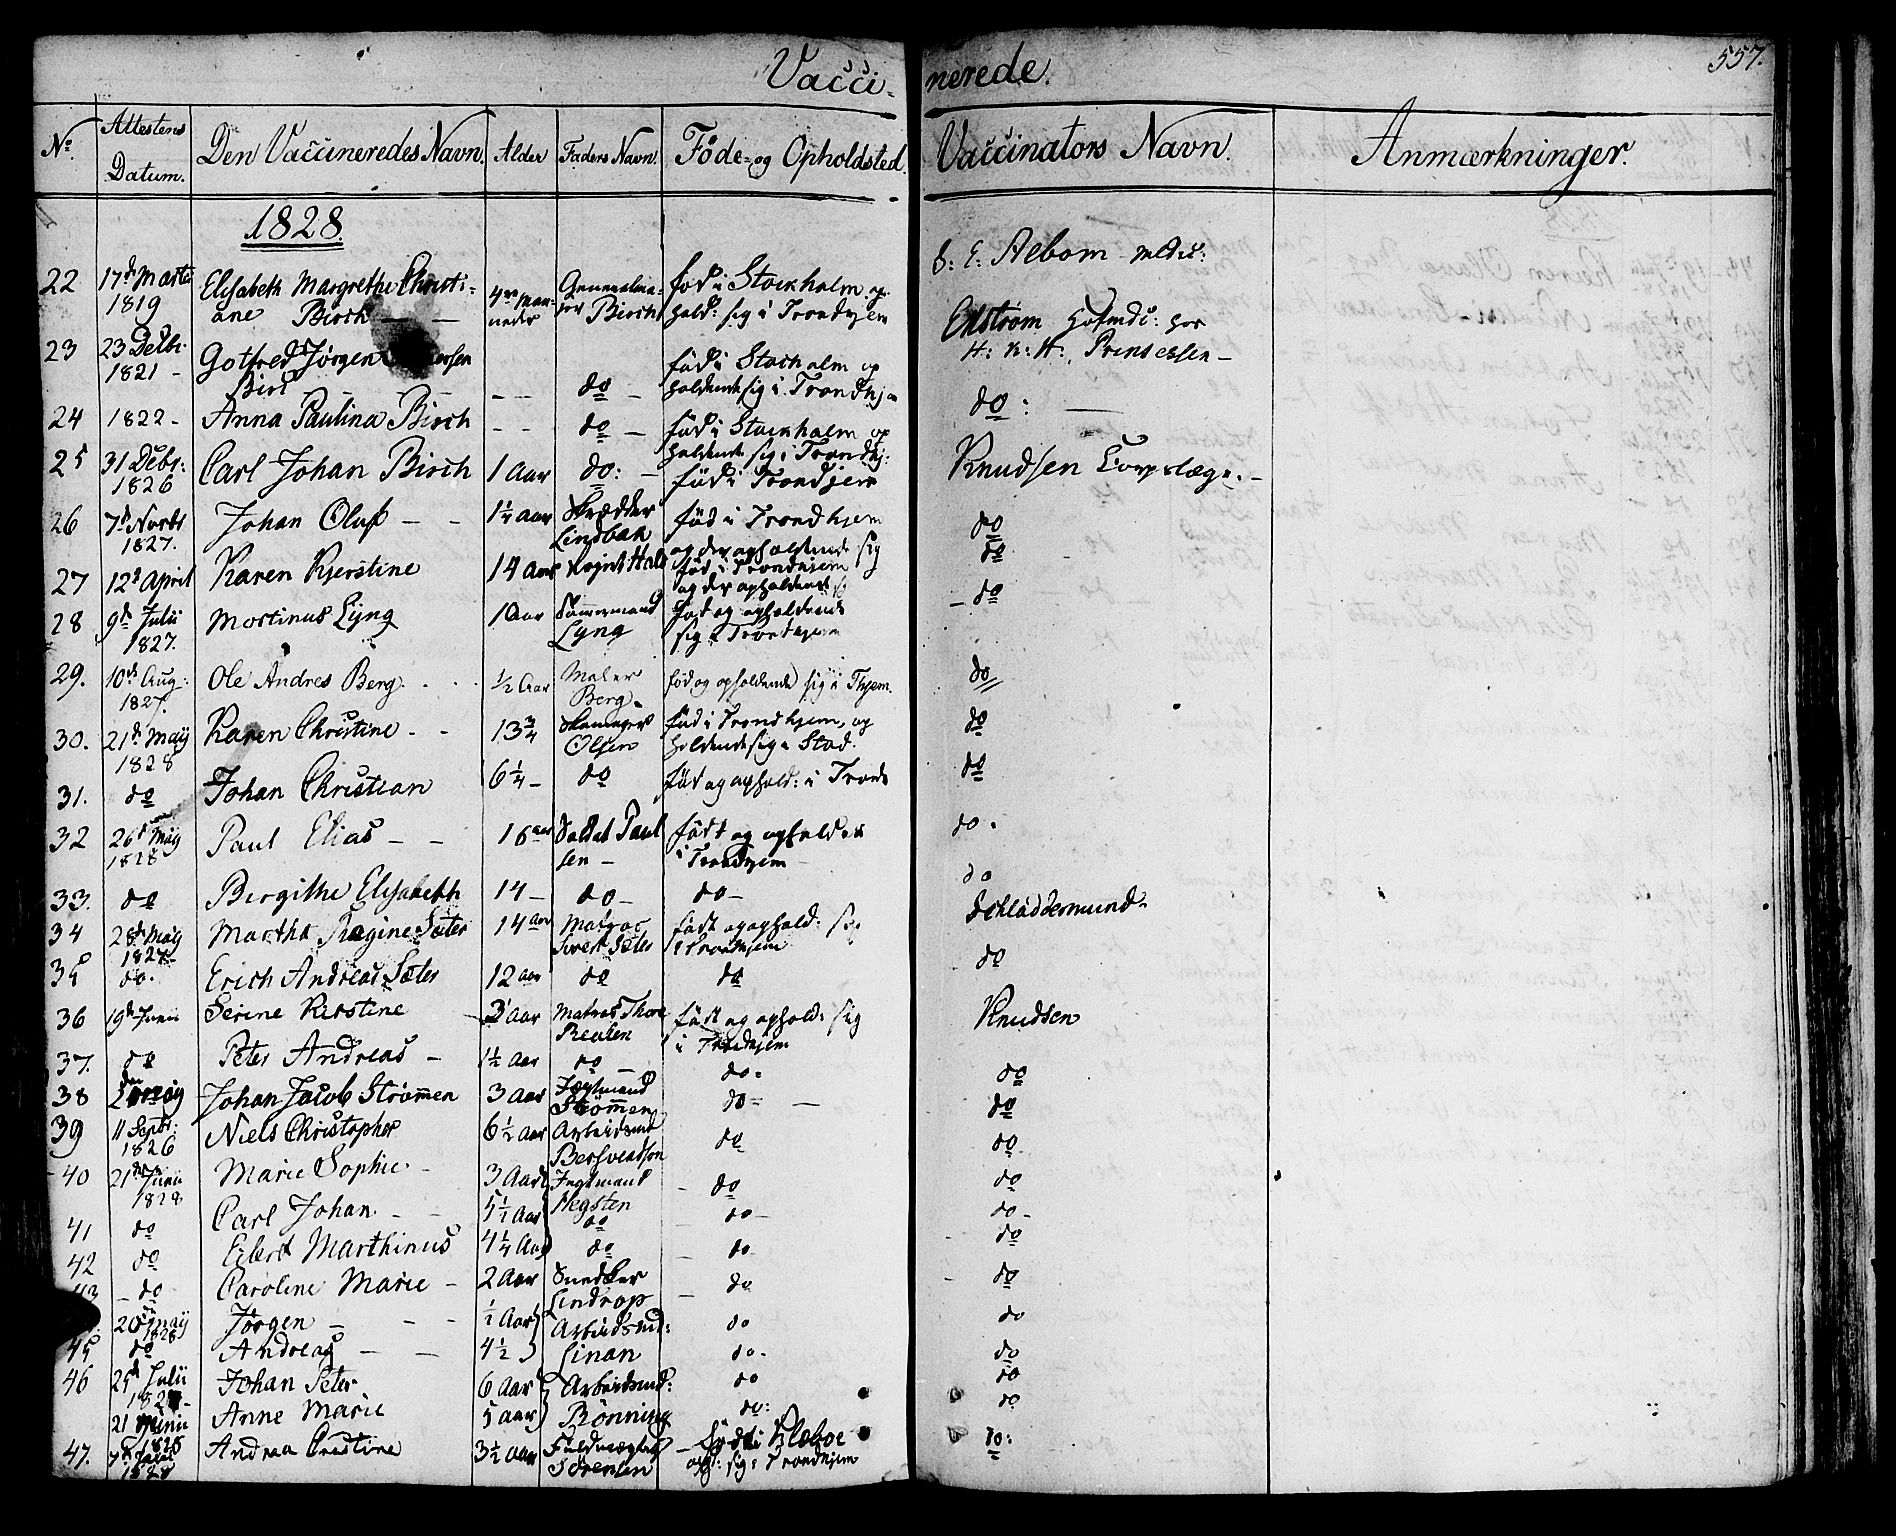 Vacci-
nerede.
557.
No. Attestens Datum. Den Vaccineredes Navn. Alder Faders Navn. Føde- og Opholdsted. Vaccinators Navn. Anmærkninger.
1828.
22 17de Marti 1819 Elisabeth Margrethe Christi-ane Birch 4re Maa-neder Generalma-jor Birch fød i Stockholm op-hold: sig i Trondhjem
S: E: Aebom Medic:
23 23 Delbr 1821 - Gotfred Jørgen Birch do fød i Stockholm op holdende sig i Trondhj
Ekstrøm Hofmedic: hos H: K: H: Prinsessen -
24 1822 - Anna Paulina Birch - - do - fød i Stockholm op holdende sig i Trondhj:
do:
25 31 Debr: 1826 Carl Johan Birch 1 Aar do: - fød i Trondhjem
Knudsen Corpslæge. -
26 7d Novbr 1827. Johan Oluf - - 1 1/4 aar Skrædder Lindbak fød i Trondhjem og der opholdende sig
do
27 12d April Karen Kjerstine 14 aar fød i Trondhjem og der opholdende
do
28 9de Julii 1827. Martinus Lyng 1 Aar Tømmermand Lyng fød og opholdende sig i Trondhjem
- do
29. 10de Aug: 1827. Ole Andres Berg. 1/2 Aar Maler Berg. fød og opholdende sig i Thjem.
do
30. 21de May 1828 Karen Christine - - 13 3/4 Olsen fød i Trondhjem, og holdende sig i Stad.
do
31. do Johan Christian 6 1/4 - do fød og ophold: i Trond
do
32 26d May 1828 Paul Elias - - 16 aar Soldat Paul sen - født og ophold i Trondhjem
do.
33. do Birgithe Elisabeth 14 - do - do -
do
34 28de May 1827 Martha Regine Sæter 14 aar Matros Sivert Sæter født og ophold: sig i Trondhjem
Schladdermund.
35 do. Erich Andreas Sæter 12 aar do do
do
36 19de Junii Serine Kirstine 3 aar Matros Thore født og ophold: sig i Trondhjem
Knudsen
37. do Peter Andreas - 1 1/2 aar do - do -
do
38 Johan Jacob Strømmen 3 aar Jægtmand Strømmen do -
do
39 11 Septbr: 1826 Niels Christopher 6 1/2 aar Arbeidsmd do
do
40 21de Junii 1828 Marie Sophie - 3 Aar Jægtmand Hegsten - do
do
41 do Carl Johan - - 5 1/2 Aar do do -
do -
42 do Eilert Marthinus 4 1/4 Aar do do
do
43 - do Caroline Marie - 2 Aar Snedker Lindrop do
do
20 May 1828 Jørgen - - 1/2 Aar Arbeidsmd: do
do
45 do Andreas - - 4 1/2 Linan do -
do
46 25d Julii Johan Peter 6 Aar Arbeidsmd: do
do
21 Junii 1828 Anne Marie 5 aar Bønning do:
do
47. 7de Andrea Cristine 3 1/2 aar Fuldmægtig Sørensen - født i Klæboe oph: sig i Trondhjem
do: